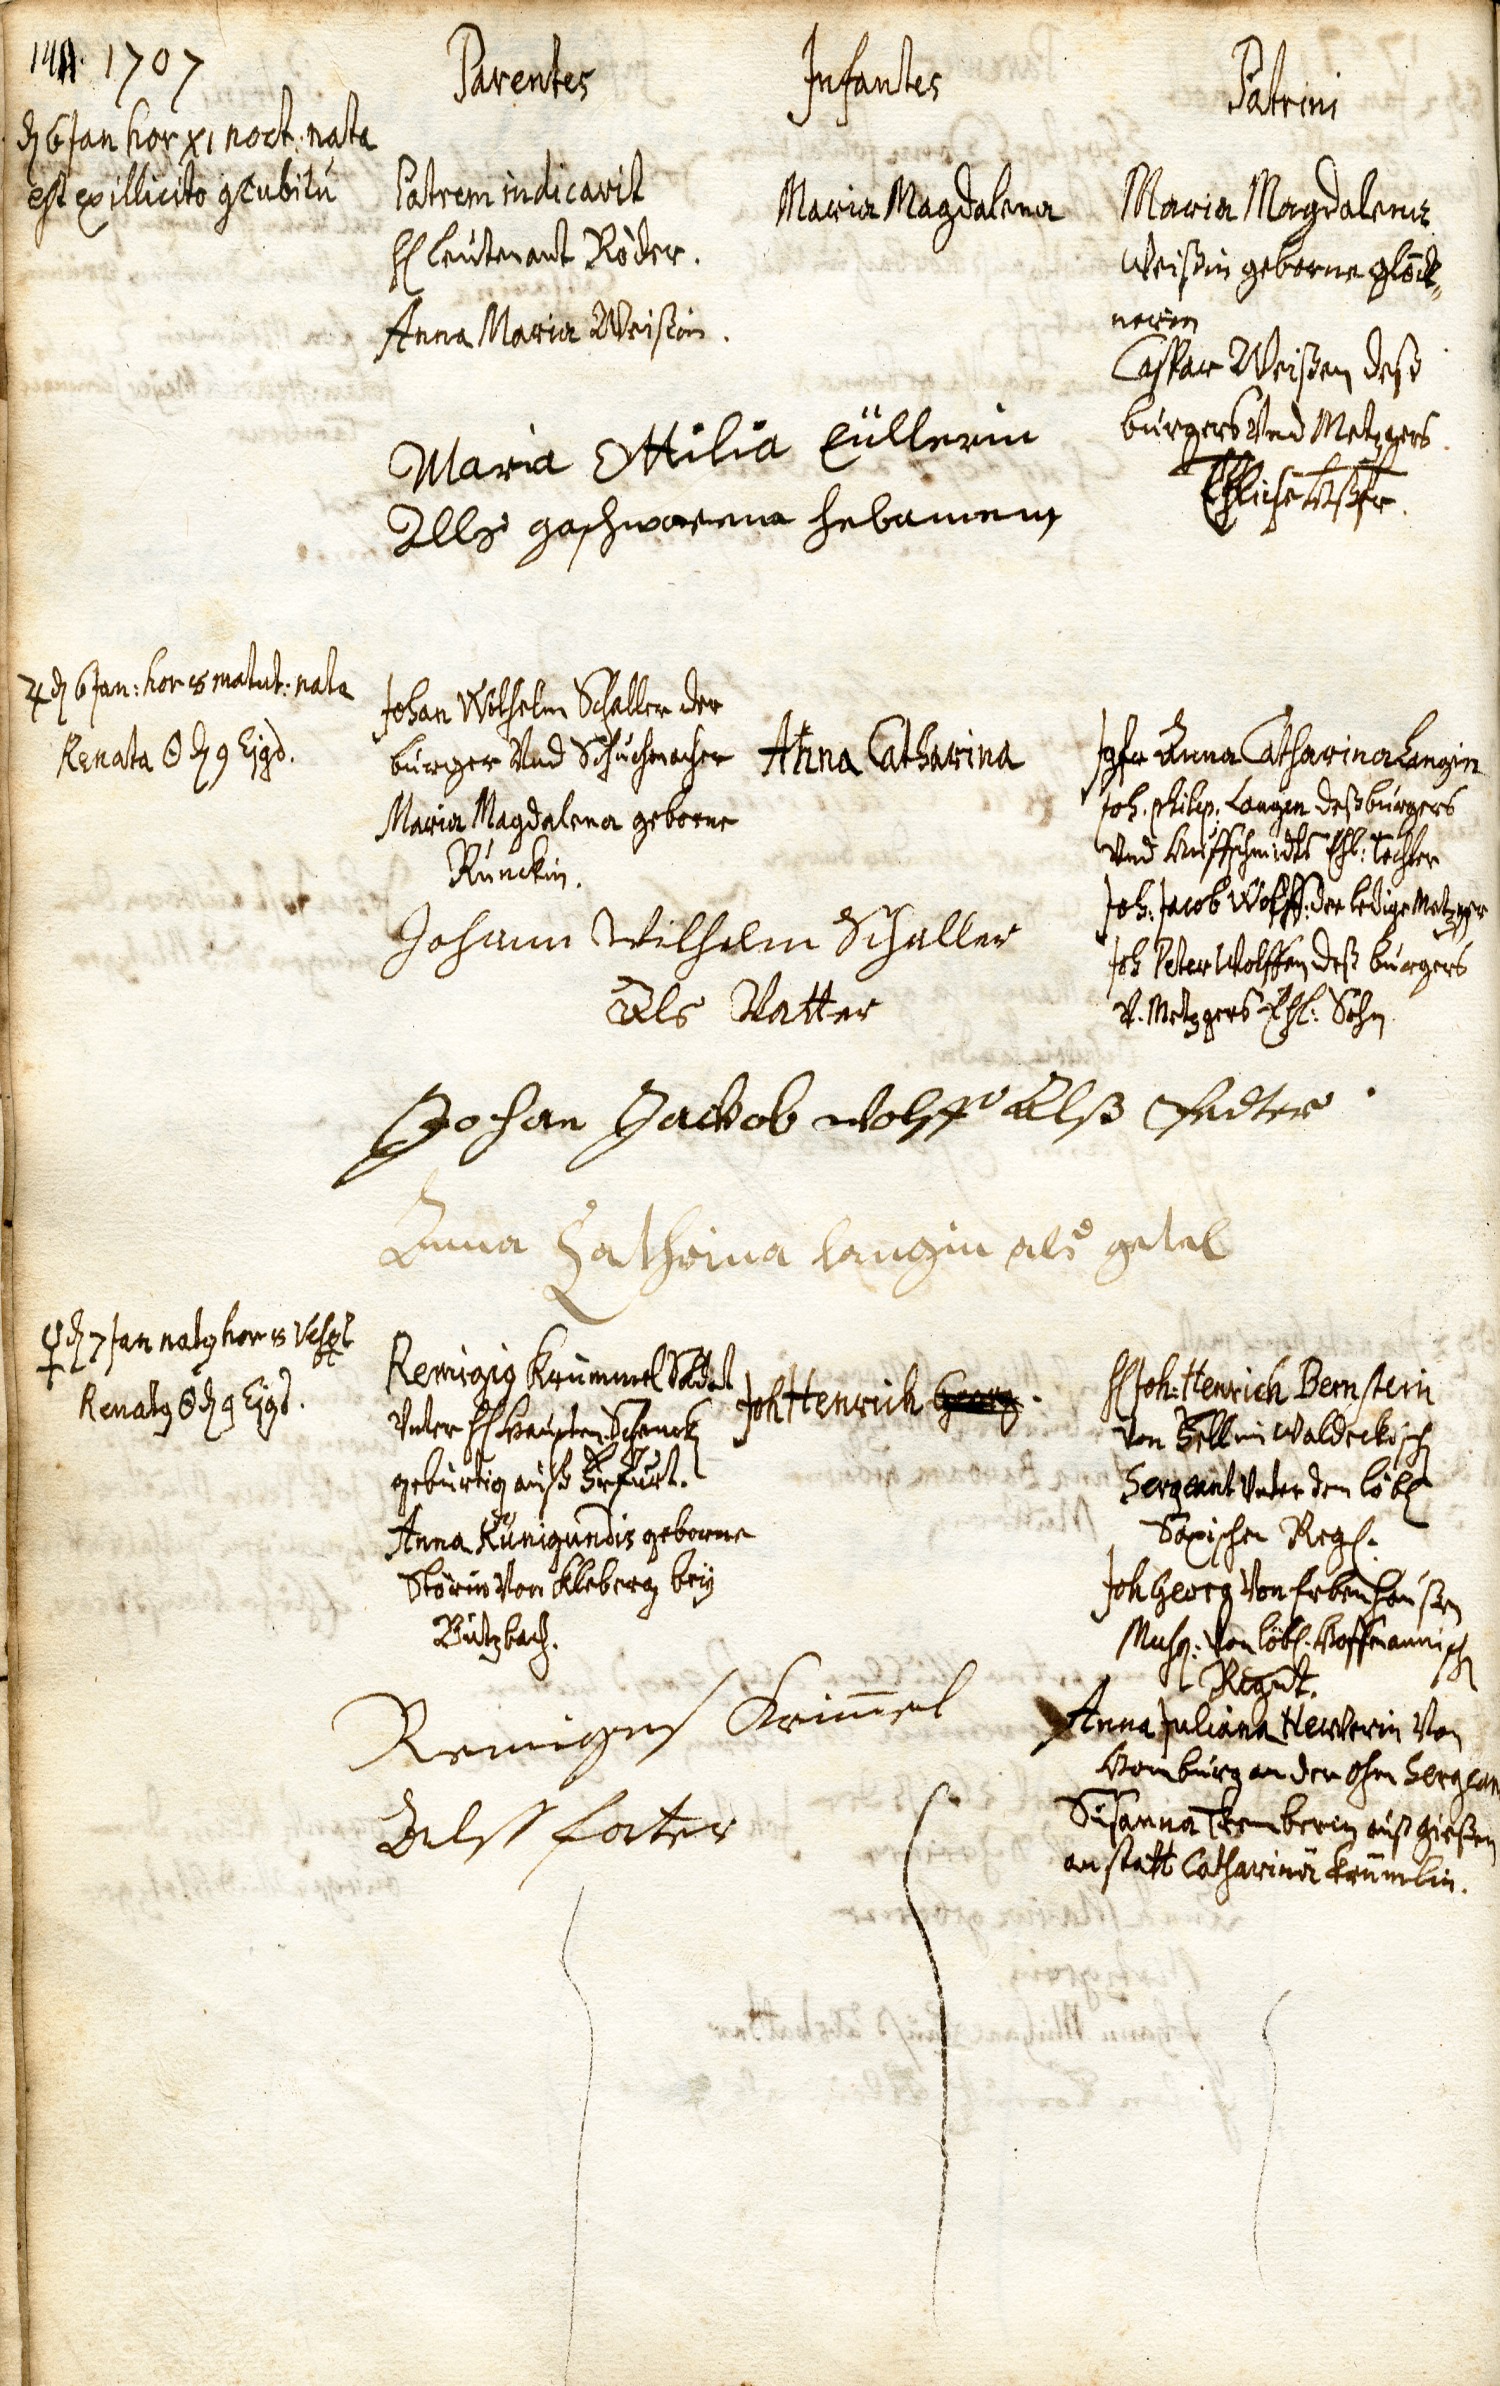 1707
Parentes
Infantes
Patrini
d 6 Jan hor XI noct: nata
est ex illicito gcubitu
Patrem indicavit
H Leutenant Röder.
Anna Maria Weißin.
Maria Magdalena
Maria Magdalena
Weißin geborne glöck-
nerin
Caspar Weißen deß
burgers Und Metzgers
Ehliche
Maria Ottilia Cüllerin
Alls geschworene hebamem
♃ d 6 Jan: hor 8 matut: nata
Renata ☉ d 9 Ejsd.
Johan Wilhelm Schaller der
burger Und Schuchmacher
Maria Magdalena geborne
Runckin.
Anna Catharina
Jgfr Anna Catharina Langin
Joh. philip: Langen deß burgers
Und Huffschmidts Ehl: tochter
Joh: Jacob Wolff: der ledige Metzger
Joh Peter Wolffen deß burgers
V. Metzgers Ehl: Sohn
Johann Wilhelm Schaller
Als Vatter
Johan Jackob wolff Alß
Anna Cathrina langin als getel
♀ d 7 Jan natg hor 8
Renatg ☉ d 9 Ejsd.
Remigig Krummel Soldat
Unter H Haupten Schenck
gebürtig auß Erfurt.
Anna Kunigundis geborne
Störin Von Kleberg bey
Butzbach.
Joh Henrich Georg.
H Joh: Henrich Bernstein
Von Zell im Waldeckisch
Sergeant Unter dem löbl
Saxischen Reg.
Joh Georg Von Erbenhaußen
Musq: Von löbl.
Regmt.
Anna Juliana Von
Homburg an der Ohm
Susanna auß gießen
anstatt Catharinä Krumlin.
Remigus Krimel
Alss fater